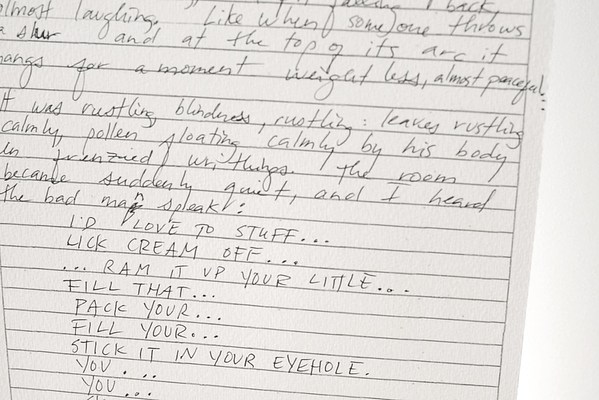 back
almost laughing. "Like when someone throws
a and at the top of its arc it
hangs for a moment weightless, almost peaceful:
It was rustling blindness, rustling: leaves rustling
calmly, pollen floating calmly by his body
in frenzied writhings. The room
became suddenly quiet, and I heard
the bad man speak:
I'D LOVE TO STUFF...
LICK CREAM OFF...
... RAM IT UP YOUR LITTLE...
FILL THAT...
PACK YOUR...
FILL YOUR...
STICK IT IN YOUR EYEHOLE.
YOU ...
YOU ...